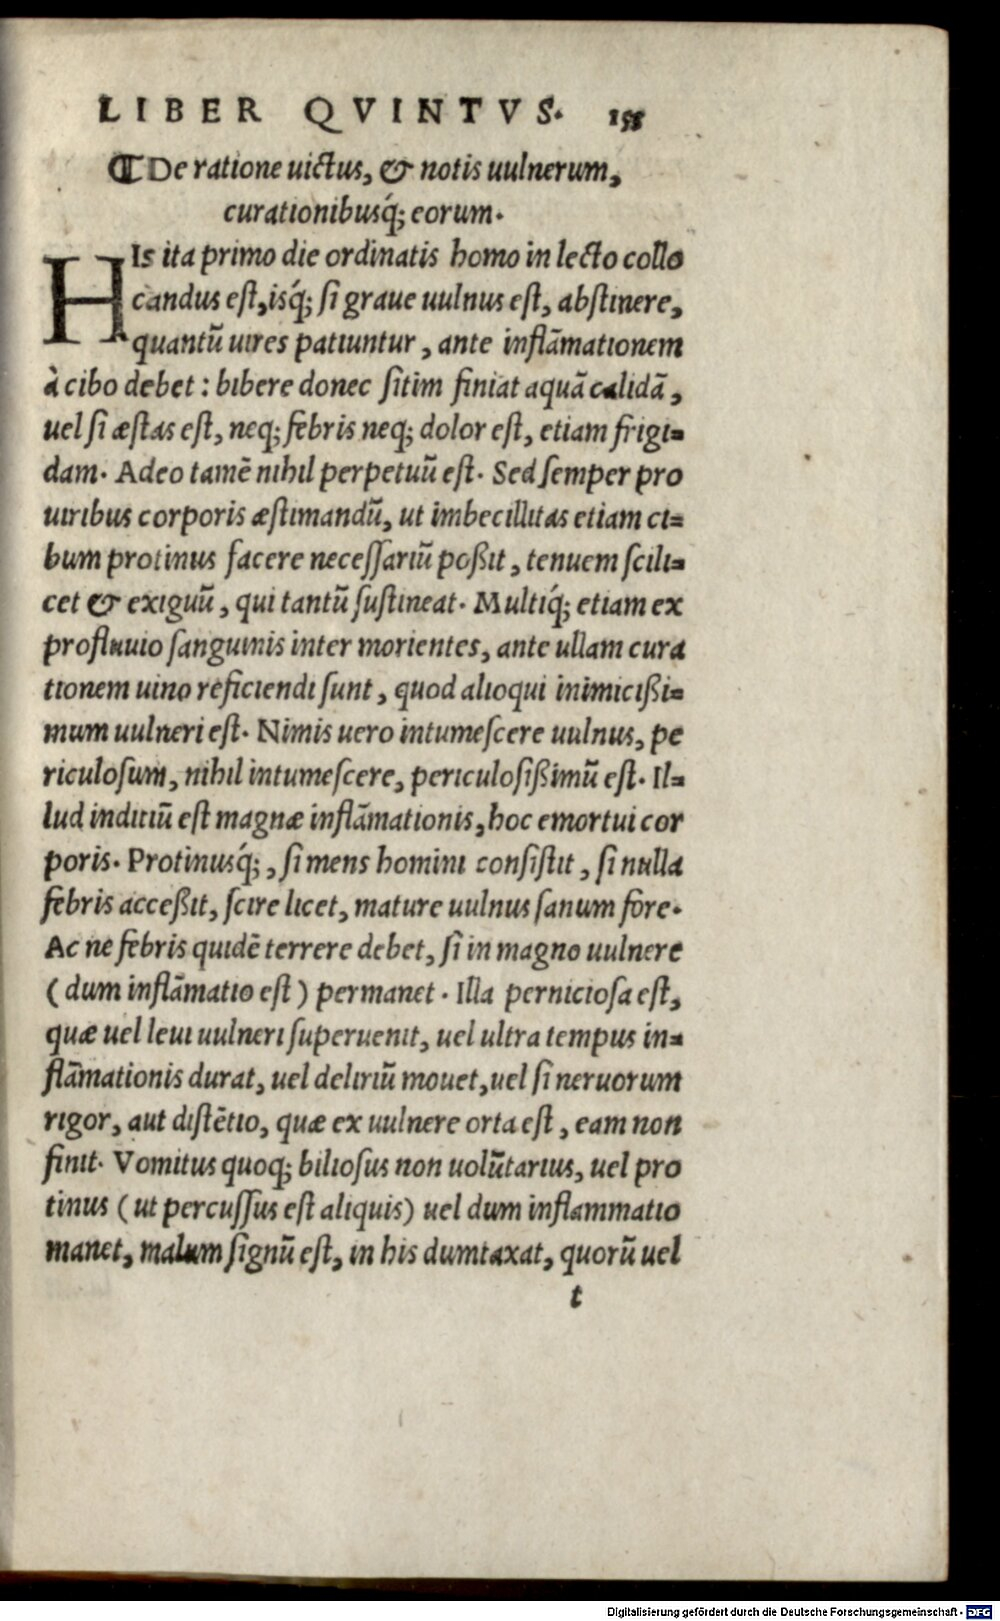 LIBER QVINTVS. 155
¶ De ratione uictus, & notis uulnerum,
curationibusq́; eorum.
HIs ita primo die ordinatis homo in lecto collo
candus est, isq́; si graue uulnus est, abstinere,
quantũ uires patiuntur, ante inflãmationem
à cibo debet: bibere donec sitim finiat aquã calidã,
uel si æstas est, neq; febris neq; dolor est, etiam frigi=
dam. Adeo tamẽ nihil perpetuũ est. Sed semper pro
uiribus corporis æstimandũ, ut imbecillitas etiam ci=
bum protinus facere necessariũ poßit, tenuem scili=
cet & exiguũ, qui tantũ sustineat. Multiq́; etiam ex
profluuio sanguinis inter morientes, ante ullam cura
tionem uino reficiendi sunt, quod alioqui inimicißi=
mum uulneri est. Nimis uero intumescere uulnus, pe
riculosum, nihil intumescere, periculosißimũ est. Il=
lud inditiũ est magnæ inflãmationis, hoc emortui cor
poris. Protinusq́;, si mens homini consistit, si nulla
febris acceßit, scire licet, mature uulnus sanum fore.
Ac ne febris quidẽ terrere debet, si in magno uulnere
(dum inflãmatio est) permanet. Illa perniciosa est,
quæ uel leui uulneri superuenit, uel ultra tempus in=
flãmationis durat, uel deliriũ mouet, uel si neruorum
rigor, aut distẽtio, quæ ex uulnere orta est, eam non
finit. Vomitus quoq; biliosus non uolũtarius, uel pro
tinus (ut percussus est aliquis) uel dum inflammatio
manet, malum signũ est, in his dumtaxat, quorũ uel
t
Digitalisierung gefördert durch die Deutsche Forschungsgemeinschaft - DFG